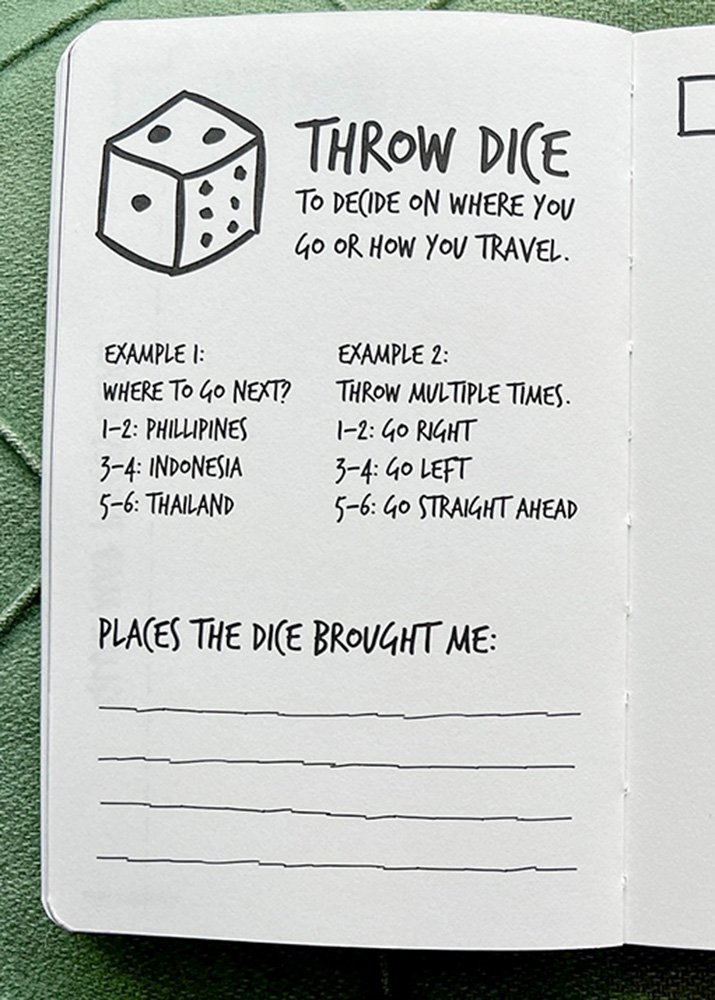 THROW DICE
TO DECIDE ON WHERE YOU
GO OR HOW YOU TRAVEL.
EXAMPLE 1:
WHERE TO GO NEXT?
1-2: PHILLIPINES
3-4: INDONESIA
5-6: THAILAND
EXAMPLE 2:
THROW MULTIPLE TIMES.
1-2: GO RIGHT
3-4: GO LEFT
5-6: GO STRAIGHT AHEAD
PLACES THE DICE BROUGHT ME: